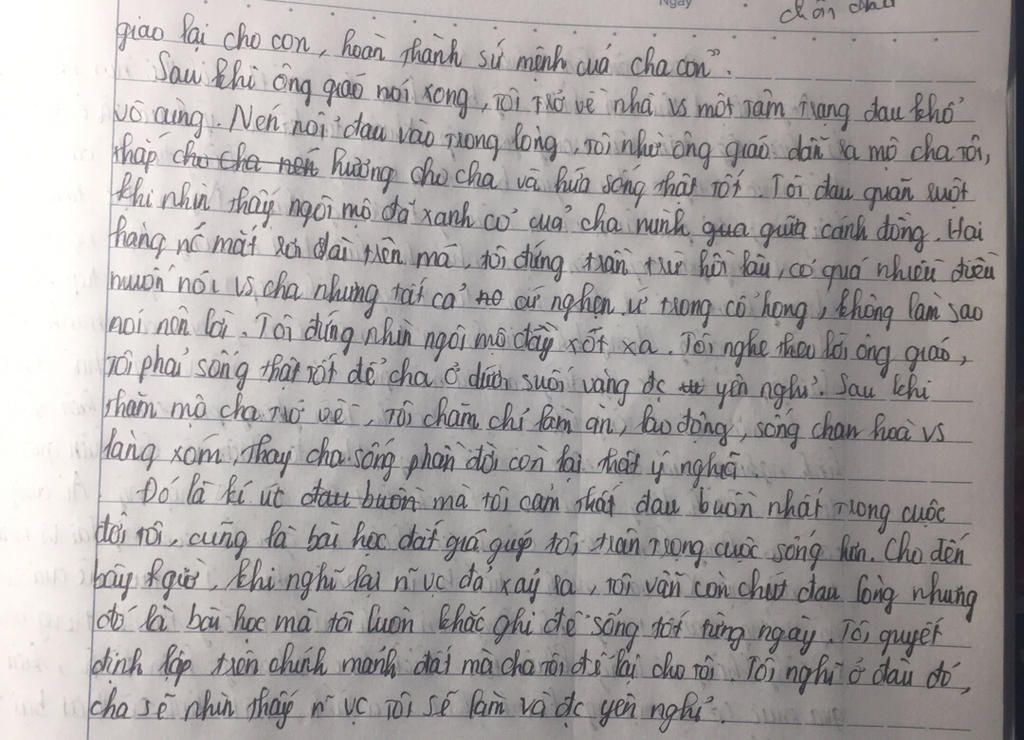 Ngày
chân
giao lại cho con, hoàn thành sứ mệnh của cha con".
Sau khi ông giáo nói xong, tôi trở về nhà vs một tâm trạng đau khổ
vô cùng. Nén nỗi đau vào trong lòng, tôi nhờ ông giáo dẫn ra mộ cha tôi,
thắp cho cha nén hương cho cha và hứa sống thật tốt. Tôi đau quằn
khi nhìn thấy ngôi mộ đã xanh cỏ của cha mình qua giữa cánh đồng. Hai
hàng nc mắt rơi dài trên má, tôi đứng trân trừ hồi lâu, có quá nhiều điều
muốn nói vs cha nhưng tất cả cứ nghẹn ứ trong cổ họng, không làm sao
nói nên lời. Tôi đứng nhìn ngôi mộ đầy xót xa. Tôi nghe theo lời ông giáo,
tôi phải sống thật tốt để cha ở dưới suối vàng đc yên nghỉ. Sau khi
thăm mộ cha trở về, tôi chăm chỉ làm ăn, lao động, sống chan hoà vs
làng xóm, thay cha sống phần đời còn lại thật ý nghĩa.
Đó là kí ức đau buồn mà tôi cảm thất đau buồn nhất trong cuộc
đời tôi, cũng là bài học đắt giá giúp tôi trân trọng cuộc sống hơn. Cho đến
bây giờ, khi nghĩ lại n~ vc đã xảy ra, tôi vẫn còn chút đau lòng nhưng
đó là bài học mà tôi luôn khắc ghi để sống tốt từng ngày. Tôi quyết
định lập trên chính mảnh đất mà cha tôi để lại cho tôi. Tôi nghĩ ở đâu đó,
cha sẽ nhìn thấy n~ vc tôi sẽ làm và đc yên nghỉ.